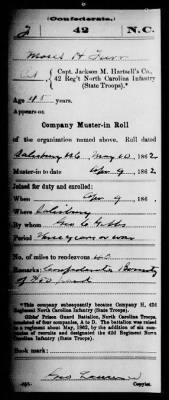 (Confederate.)
2 42 N.C.
Moses H
Pvt, Capt. Jackson M. Hartsell's Co.,
42 Reg't North Carolina Infantry
(State Troops).*
Age 45 years.
Appears on
Company Muster-in Roll
of the organization named above. Roll dated
Salisbury N.C., May 20, 1862.
Muster-in to date Apr 9, 1862.
Joined for duty and enrolled:
When Apr 9, 186
Where Salisbury
By whom Geo C Gibbs
Period Three years or war
No. of miles to rendezvous
Remarks: Confederate Bounty
of paid
*This company subsequently became Company H, 42d
Regiment North Carolina Infantry (State Troops).
Gibbs' Prison Guard Battalion, North Carolina Troops,
consisted of four companies, A to D. The battalion was raised
to a regiment about May, 1862, by the addition of six com-
panies of recruits and designated the 42d Regiment North
Carolina Infantry (State Troops).
Book mark:
Copyist.